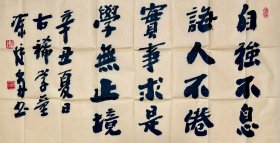 自強不息
誨人不倦
實事求是
學無止境
辛丑夏日
古稀学童